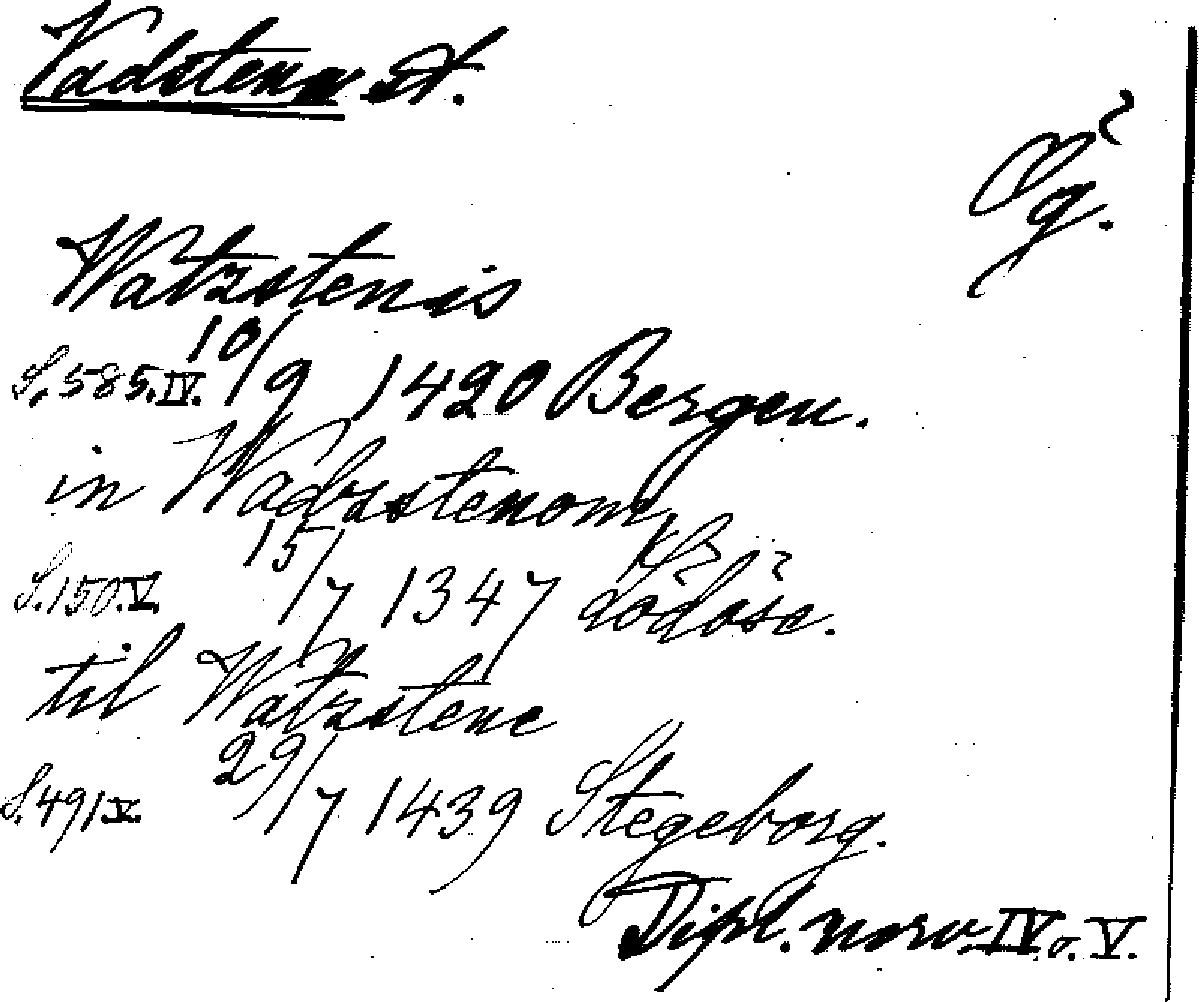 Vadstena st.
Ög.
Watzstenis
S. 585. IV. 10/9 1420 Bergen.
in Wadzstenom
S. 150. V. 15/7 1347 Lödöse.
til Watzstene
S. 491 V. 29/7 1439 Stegeborg.
Dipl. norv. IV. o. V.